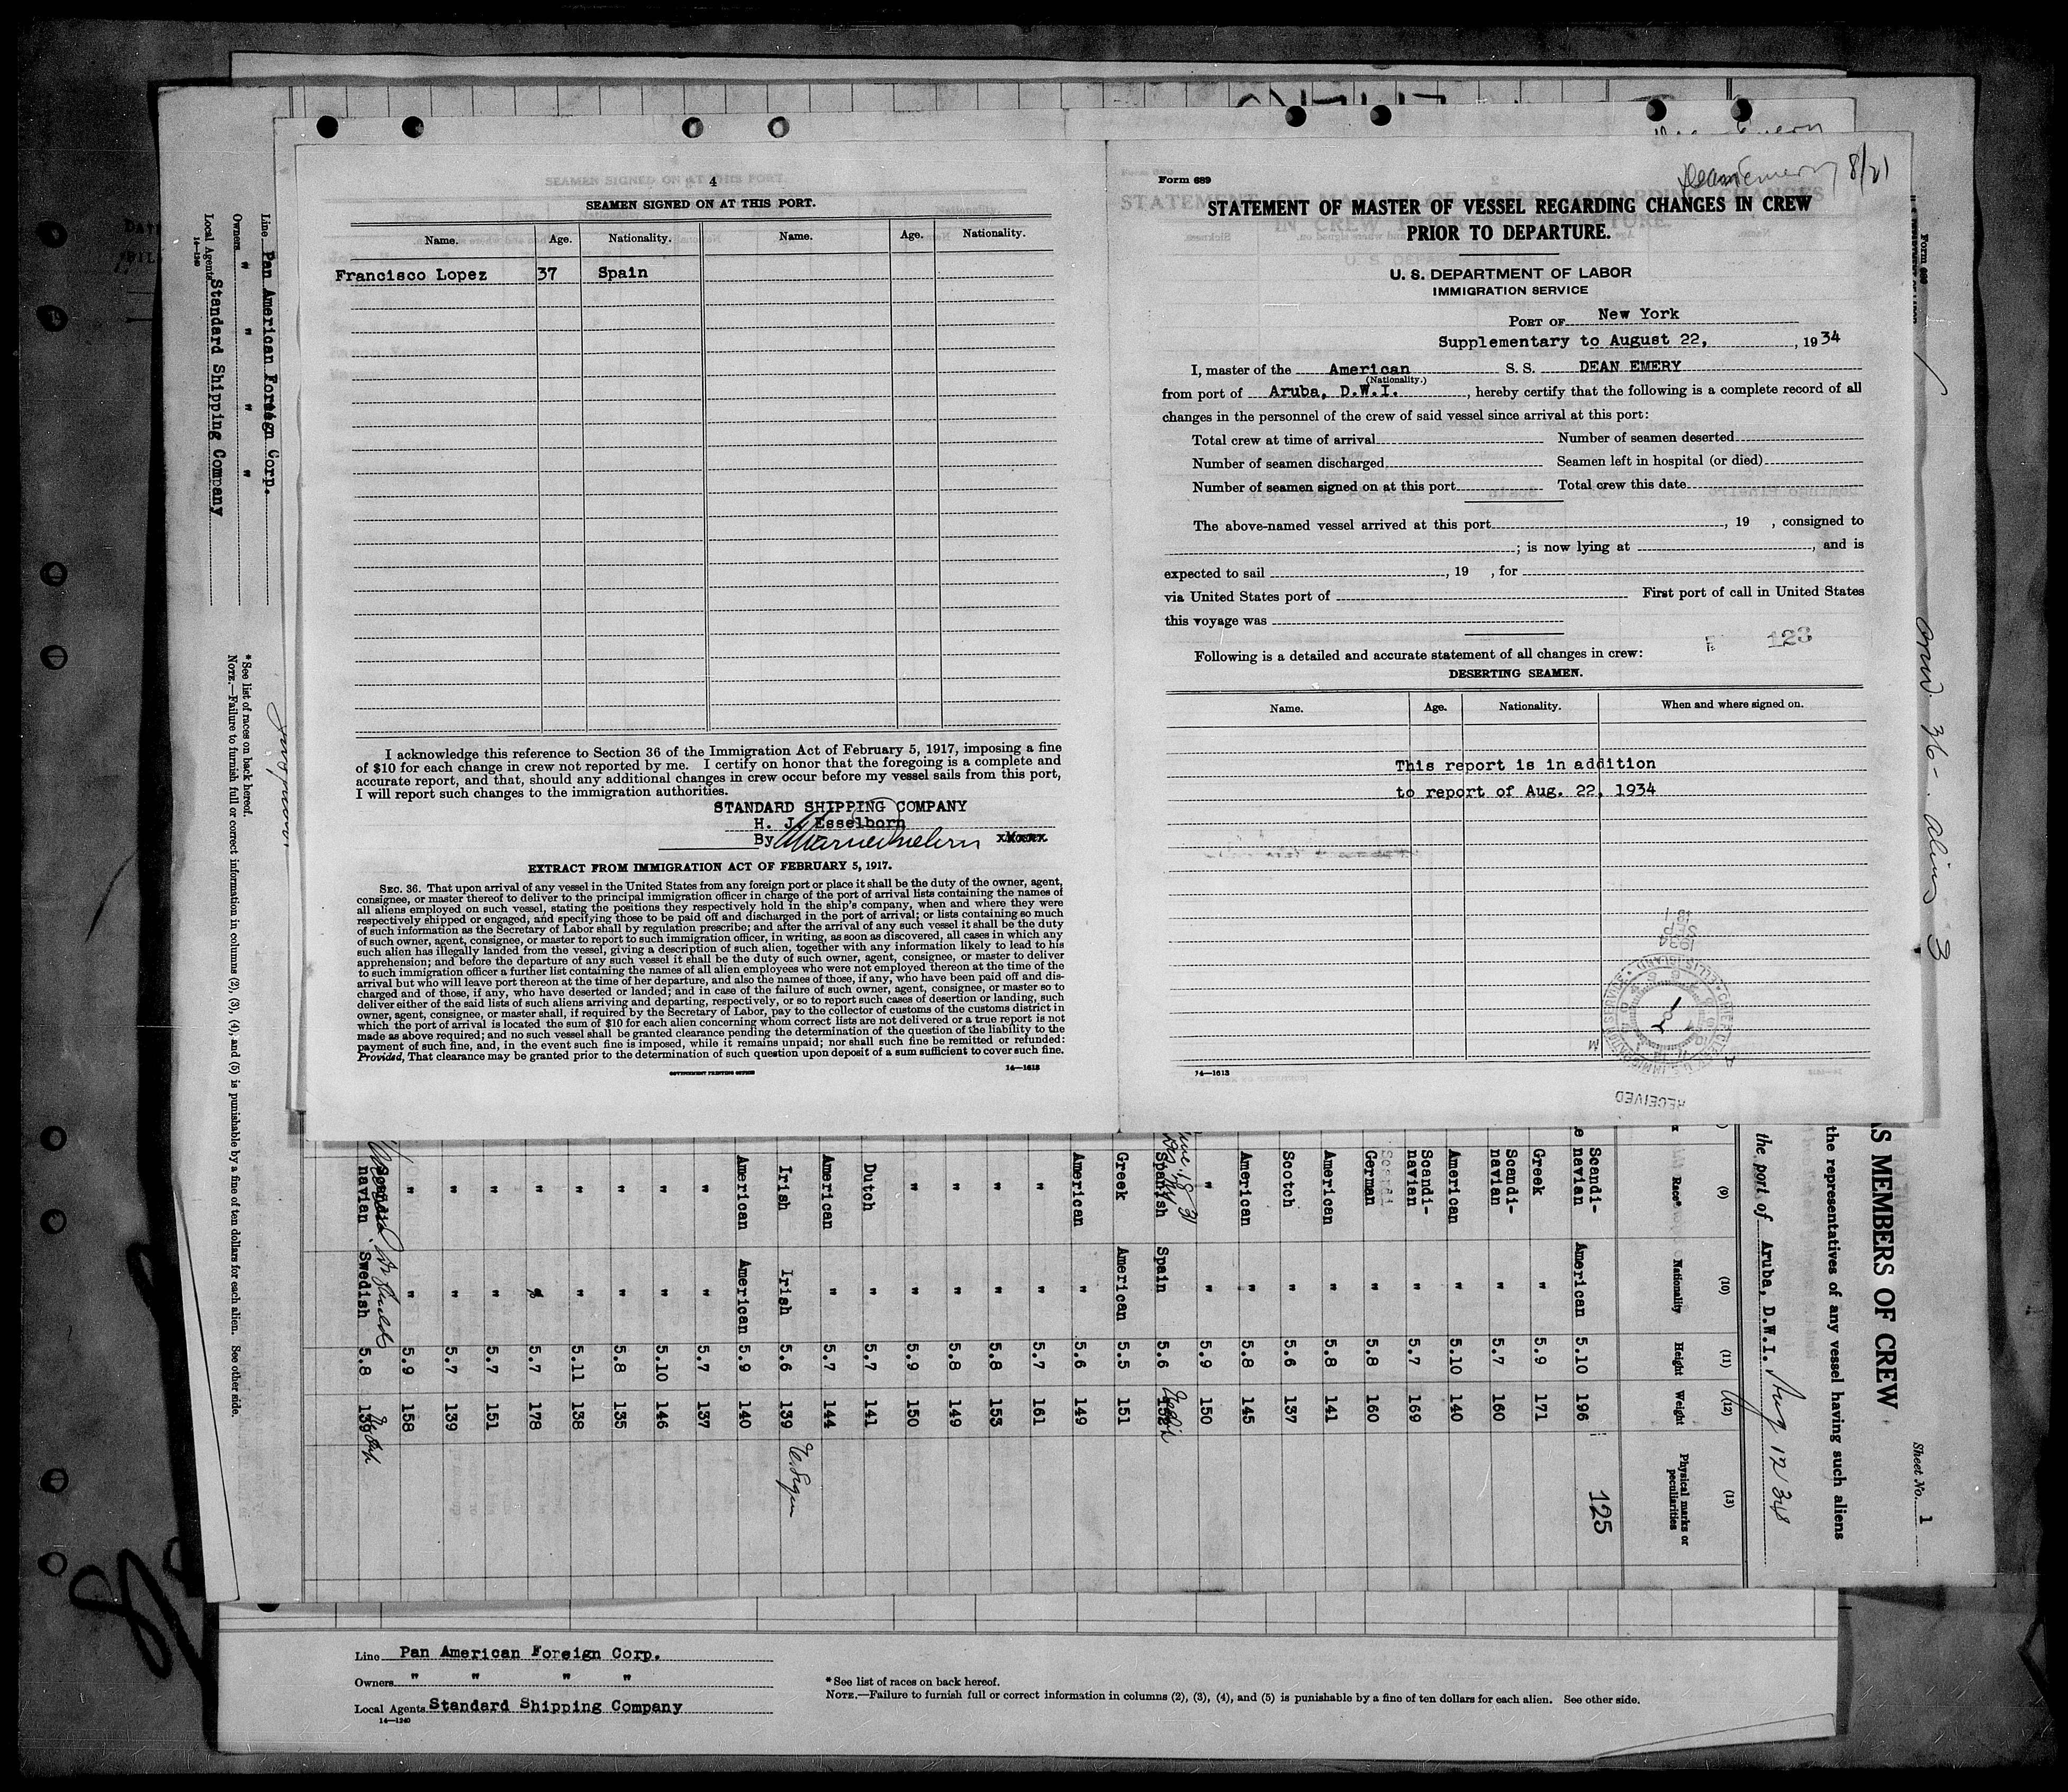 4
SEAMEN SIGNED ON AT THIS PORT.
Name. Age. Nationality. Name. Age. Nationality.
Francisco Lopez 37 Spain
I acknowledge this reference to Section 36 of the Immigration Act of February 5, 1917, imposing a fine
of $10 for each change in crew not reported by me. I certify on honor that the foregoing is a complete and
accurate report, and that, should any additional changes in crew occur before my vessel sails from this port,
I will report such changes to the immigration authorities.
STANDARD SHIPPING COMPANY
H. J. Esselborn
By
EXTRACT FROM IMMIGRATION ACT OF FEBRUARY 5, 1917.
SEC. 36. That upon arrival of any vessel in the United States from any foreign port or place it shall be the duty of the owner, agent,
consignee, or master thereof to deliver to the principal immigration officer in charge of the port of arrival lists containing the names of
all aliens employed on such vessel, stating the positions they respectively hold in the ship's company, when and where they were
respectively shipped or engaged, and specifying those to be paid off and discharged in the port of arrival; or lists containing so much
of such information as the Secretary of Labor shall by regulation prescribe; and after the arrival of any such vessel it shall be the duty
of such owner, agent, consignee, or master to report to such immigration officer, in writing, as soon as discovered, all cases in which any
such alien has illegally landed from the vessel, giving a description of such alien, together with any information likely to lead to his
apprehension; and before the departure of any such vessel it shall be the duty of such owner, agent, consignee, or master to deliver
to such immigration officer a further list containing the names of all alien employees who were not employed thereon at the time of the
arrival but who will leave port thereon at the time of her departure, and also the names of those, if any, who have been paid off and dis-
charged and of those, if any, who have deserted or landed; and in case of the failure of such owner, agent, consignee, or master so to
deliver either of the said lists of such aliens arriving and departing, respectively, or so to report such cases of desertion or landing, such
owner, agent, consignee, or master shall, if required by the Secretary of Labor, pay to the collector of customs of the customs district in
which the port of arrival is located the sum of $10 for each alien concerning whom correct lists are not delivered or a true report is not
made as above required; and no such vessel shall be granted clearance pending the determination of the question of the liability to the
payment of such fine, and, in the event such fine is imposed, while it remains unpaid; nor shall such fine be remitted or refunded:
Provided, That clearance may be granted prior to the determination of such question upon deposit of a sum sufficient to cover such fine.
GOVERNMENT PRINTING OFFICE 14—1613
Form 689
Dean Emery 8/21
STATEMENT OF MASTER OF VESSEL REGARDING CHANGES IN CREW
PRIOR TO DEPARTURE.
U. S. DEPARTMENT OF LABOR
IMMIGRATION SERVICE
PORT OF New York
Supplementary to August 22, , 1934
I, master of the American S. S. DEAN EMERY
(Nationality.)
from port of Aruba, D.W.I. , hereby certify that the following is a complete record of all
changes in the personnel of the crew of said vessel since arrival at this port:
Total crew at time of arrival Number of seamen deserted
Number of seamen discharged Seamen left in hospital (or died)
Number of seamen signed on at this port Total crew this date
The above-named vessel arrived at this port , 19 , consigned to
; is now lying at , and is
expected to sail , 19 , for
via United States port of First port of call in United States
this voyage was
123
Following is a detailed and accurate statement of all changes in crew:
DESERTING SEAMEN.
Name. Age. Nationality. When and where signed on.
This report is in addition
to report of Aug. 22, 1934
1934
SEP
RECEIVED
14—1613
Line Pan American Foreign Corp.
Owners " " " "
Local Agents Standard Shipping Company
14—1240
*See list of races on back hereof.
NOTE.—Failure to furnish full or correct information in columns (2), (3), (4), and (5) is punishable by a fine of ten dollars for each alien. See other side.
Form 689
36 - aliens 3
Sheet No. 1
AS MEMBERS OF CREW
the representatives of any vessel having such aliens
the port of Aruba, D.W.I. Aug 12
(9) (10) (11) (12) (13)
Race* Nationality Height Weight Physical marks or peculiarities
Scandi-navian American 5.10 196 125
Greek " 5.9 171
Scandi-navian " 5.7 160
American " 5.10 140
Scandi-navian " 5.7 169
German " 5.8 160
American " 5.8 141
Scotch " 5.6 137
American " 5.8 145
" " 5.9 150
Spanish Spain 5.6 152
Greek American 5.5 151
American " 5.6 149
" " 5.7 161
" " 5.8 153
" " 5.8 149
" " 5.9 150
Dutch " 5.7 141
American " 5.7 144
Irish Irish 5.6 139
American American 5.9 140
" " 5.7 137
" " 5.10 146
" " 5.8 135
" " 5.11 138
" " 5.7 178
" " 5.7 151
" " 5.7 139
" " 5.9 158
Scandi-navian Swedish 5.8 139
Line Pan American Foreign Corp.
Owners " " " "
Local Agents Standard Shipping Company
14—1240
*See list of races on back hereof.
NOTE.—Failure to furnish full or correct information in columns (2), (3), (4), and (5) is punishable by a fine of ten dollars for each alien. See other side.